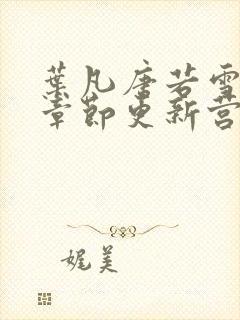 葉凡唐若雪
章節更新营
娓美